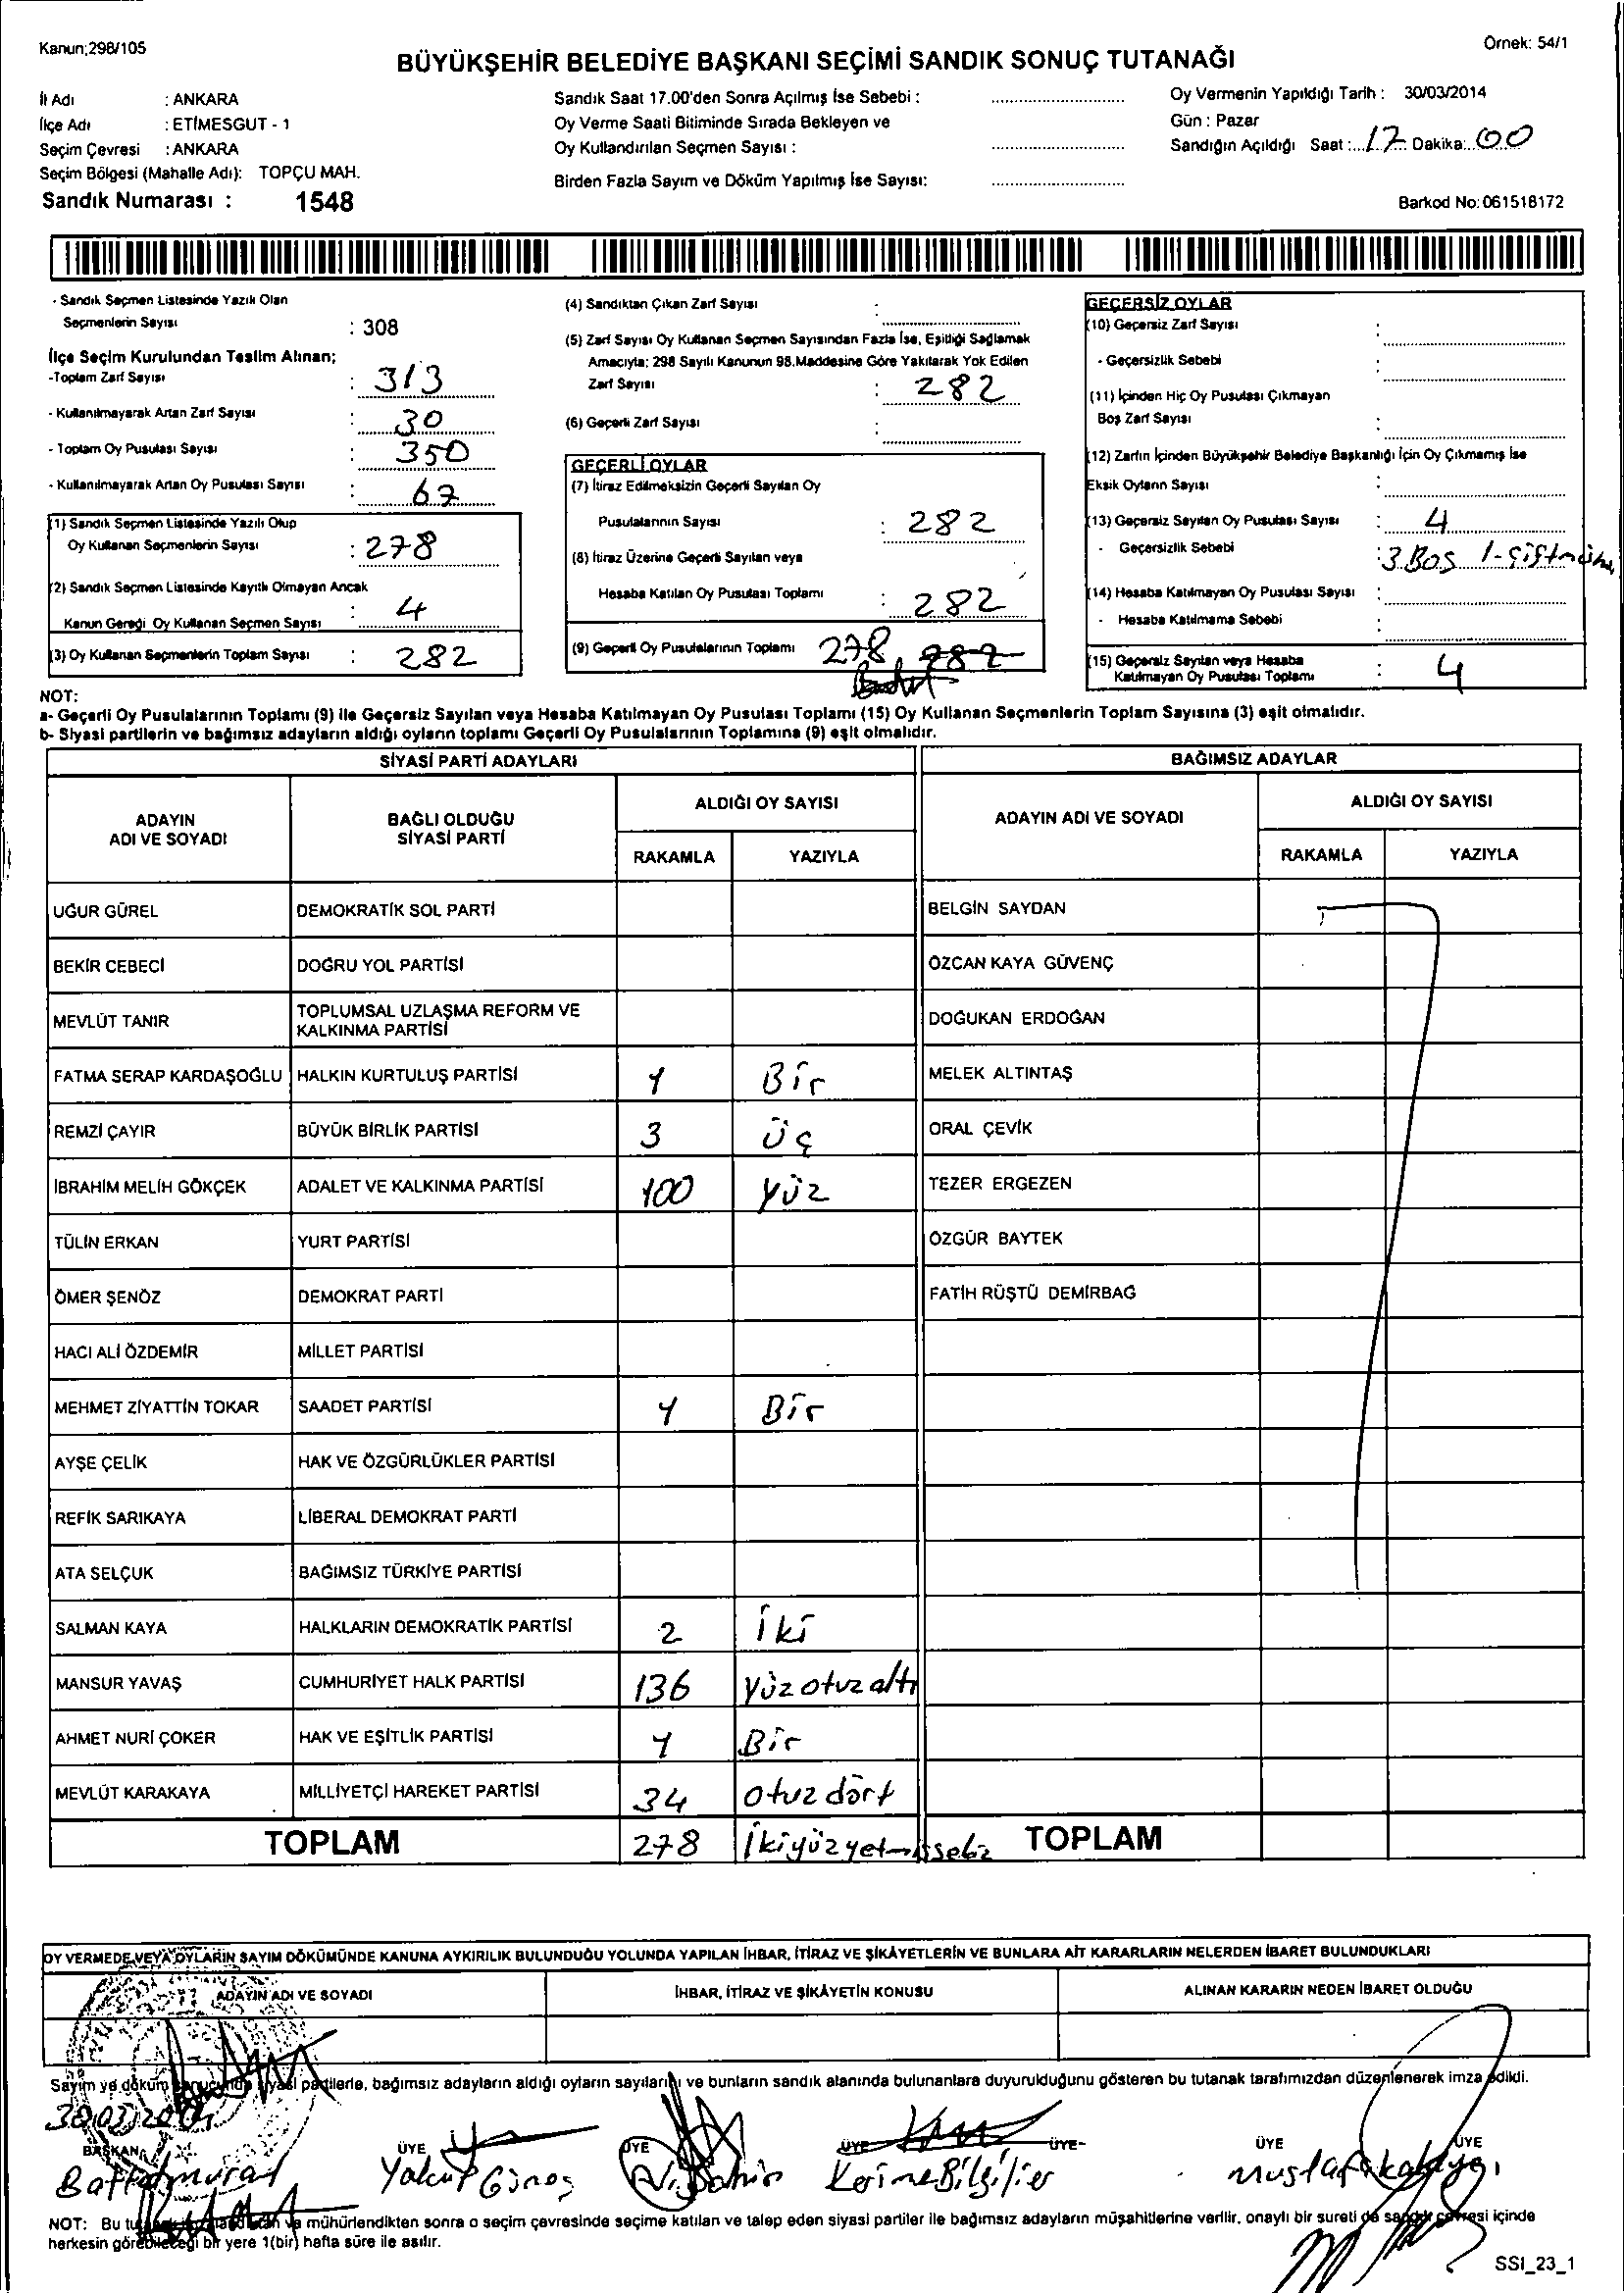 Kanun;298/105
Örnek: 54/1
BÜYÜKŞEHİR BELEDİYE BAŞKANI SEÇİMİ SANDIK SONUÇ TUTANAĞI
İl Adı : ANKARA
İlçe Adı : ETİMESGUT - 1
Seçim Çevresi : ANKARA
Seçim Bölgesi (Mahalle Adı): TOPÇU MAH.
Sandık Numarası : 1548
Sandık Saat 17.00'den Sonra Açılmış İse Sebebi :
Oy Verme Saati Bitiminde Sırada Bekleyen ve
Oy Kullandırılan Seçmen Sayısı :
Birden Fazla Sayım ve Döküm Yapılmış İse Sayısı:
Oy Vermenin Yapıldığı Tarih : 30/03/2014
Gün : Pazar
Sandığın Açıldığı Saat : 17 Dakika: 00
Barkod No:061518172
- Sandık Seçmen Listesinde Yazılı Olan
Seçmenlerin Sayısı : 308
İlçe Seçim Kurulundan Teslim Alınan;
-Toplam Zarf Sayısı : 313
- Kullanılmayarak Artan Zarf Sayısı : 30
- Toplam Oy Pusulası Sayısı : 350
- Kullanılmayarak Artan Oy Pusulası Sayısı : 67
(1) Sandık Seçmen Listesinde Yazılı Olup
Oy Kullanan Seçmenlerin Sayısı : 278
(2) Sandık Seçmen Listesinde Kayıtlı Olmayan Ancak
Kanun Gereği Oy Kullanan Seçmen Sayısı : 4
(3) Oy Kullanan Seçmenlerin Toplam Sayısı : 282
(4) Sandıktan Çıkan Zarf Sayısı :
(5) Zarf Sayısı Oy Kullanan Seçmen Sayısından Fazla İse, Eşitliği Sağlamak
Amacıyla; 298 Sayılı Kanunun 98.Maddesine Göre Yakılarak Yok Edilen
Zarf Sayısı : 282
(6) Geçerli Zarf Sayısı :
GEÇERLİ OYLAR
(7) İtiraz Edilmeksizin Geçerli Sayılan Oy
Pusulalarının Sayısı : 282
(8) İtiraz Üzerine Geçerli Sayılan veya
Hesaba Katılan Oy Pusulası Toplamı : 282
(9) Geçerli Oy Pusulalarının Toplamı 278 282
GEÇERSİZ OYLAR
(10) Geçersiz Zarf Sayısı :
- Geçersizlik Sebebi :
(11) İçinden Hiç Oy Pusulası Çıkmayan
Boş Zarf Sayısı :
(12) Zarfın İçinden Büyükşehir Belediye Başkanlığı İçin Oy Çıkmamış İse
Eksik Oyların Sayısı :
(13) Geçersiz Sayılan Oy Pusulası Sayısı : 4
- Geçersizlik Sebebi : 3 Boş 1-
(14) Hesaba Katılmayan Oy Pusulası Sayısı :
- Hesaba Katılmama Sebebi :
(15) Geçersiz Sayılan veya Hesaba
Katılmayan Oy Pusulası Toplamı : 4
NOT:
a- Geçerli Oy Pusulalarının Toplamı (9) ile Geçersiz Sayılan veya Hesaba Katılmayan Oy Pusulası Toplamı (15) Oy Kullanan Seçmenlerin Toplam Sayısına (3) eşit olmalıdır.
b- Siyasi partilerin ve bağımsız adayların aldığı oyların toplamı Geçerli Oy Pusulalarının Toplamına (9) eşit olmalıdır.
SİYASİ PARTİ ADAYLARI BAĞIMSIZ ADAYLAR
ADAYIN ADI VE SOYADI BAĞLI OLDUĞU SİYASİ PARTİ ALDIĞI OY SAYISI ADAYIN ADI VE SOYADI ALDIĞI OY SAYISI
RAKAMLA YAZIYLA RAKAMLA YAZIYLA
UĞUR GÜREL DEMOKRATİK SOL PARTİ BELGİN SAYDAN
BEKİR CEBECİ DOĞRU YOL PARTİSİ ÖZCAN KAYA GÜVENÇ
MEVLÜT TANIR TOPLUMSAL UZLAŞMA REFORM VE KALKINMA PARTİSİ DOĞUKAN ERDOĞAN
FATMA SERAP KARDAŞOĞLU HALKIN KURTULUŞ PARTİSİ 1 Bir MELEK ALTINTAŞ
REMZİ ÇAYIR BÜYÜK BİRLİK PARTİSİ 3 Üç ORAL ÇEVİK
İBRAHİM MELİH GÖKÇEK ADALET VE KALKINMA PARTİSİ 100 Yüz TEZER ERGEZEN
TÜLİN ERKAN YURT PARTİSİ ÖZGÜR BAYTEK
ÖMER ŞENÖZ DEMOKRAT PARTİ FATİH RÜŞTÜ DEMİRBAĞ
HACI ALİ ÖZDEMİR MİLLET PARTİSİ
MEHMET ZİYATTİN TOKAR SAADET PARTİSİ 1 Bir
AYŞE ÇELİK HAK VE ÖZGÜRLÜKLER PARTİSİ
REFİK SARIKAYA LİBERAL DEMOKRAT PARTİ
ATA SELÇUK BAĞIMSIZ TÜRKİYE PARTİSİ
SALMAN KAYA HALKLARIN DEMOKRATİK PARTİSİ 2 İki
MANSUR YAVAŞ CUMHURİYET HALK PARTİSİ 136 Yüzotuzaltı
AHMET NURİ ÇOKER HAK VE EŞİTLİK PARTİSİ 1 Bir
MEVLÜT KARAKAYA MİLLİYETÇİ HAREKET PARTİSİ 34 otuz dört
TOPLAM 278 TOPLAM
OY VERMEDE VEYA OYLARIN SAYIM DÖKÜMÜNDE KANUNA AYKIRILIK BULUNDUĞU YOLUNDA YAPILAN İHBAR, İTİRAZ VE ŞİKÂYETLERİN VE BUNLARA AİT KARARLARIN NELERDEN İBARET BULUNDUKLARI
ADAYIN ADI VE SOYADI İHBAR, İTİRAZ VE ŞİKÂYETİN KONUSU ALINAN KARARIN NEDEN İBARET OLDUĞU
Sayım ve döküm sonucunda siyasi partilerle, bağımsız adayların aldığı oyların sayılarını ve bunların sandık alanında bulunanlara duyurulduğunu gösteren bu tutanak tarafımızdan düzenlenerek imza edildi.
30.03.2014
BAŞKAN ÜYE ÜYE ÜYE ÜYE ÜYE ÜYE
Yakup Güneş
NOT: Bu va mühürlendikten sonra o seçim çevresinde seçime katılan ve talep eden siyasi partiler ile bağımsız adayların müşahitlerine verilir, onaylı bir sureti de sandık çevresi içinde
herkesin görebileceği bir yere 1(bir) hafta süre ile asılır.
SSI_23_1